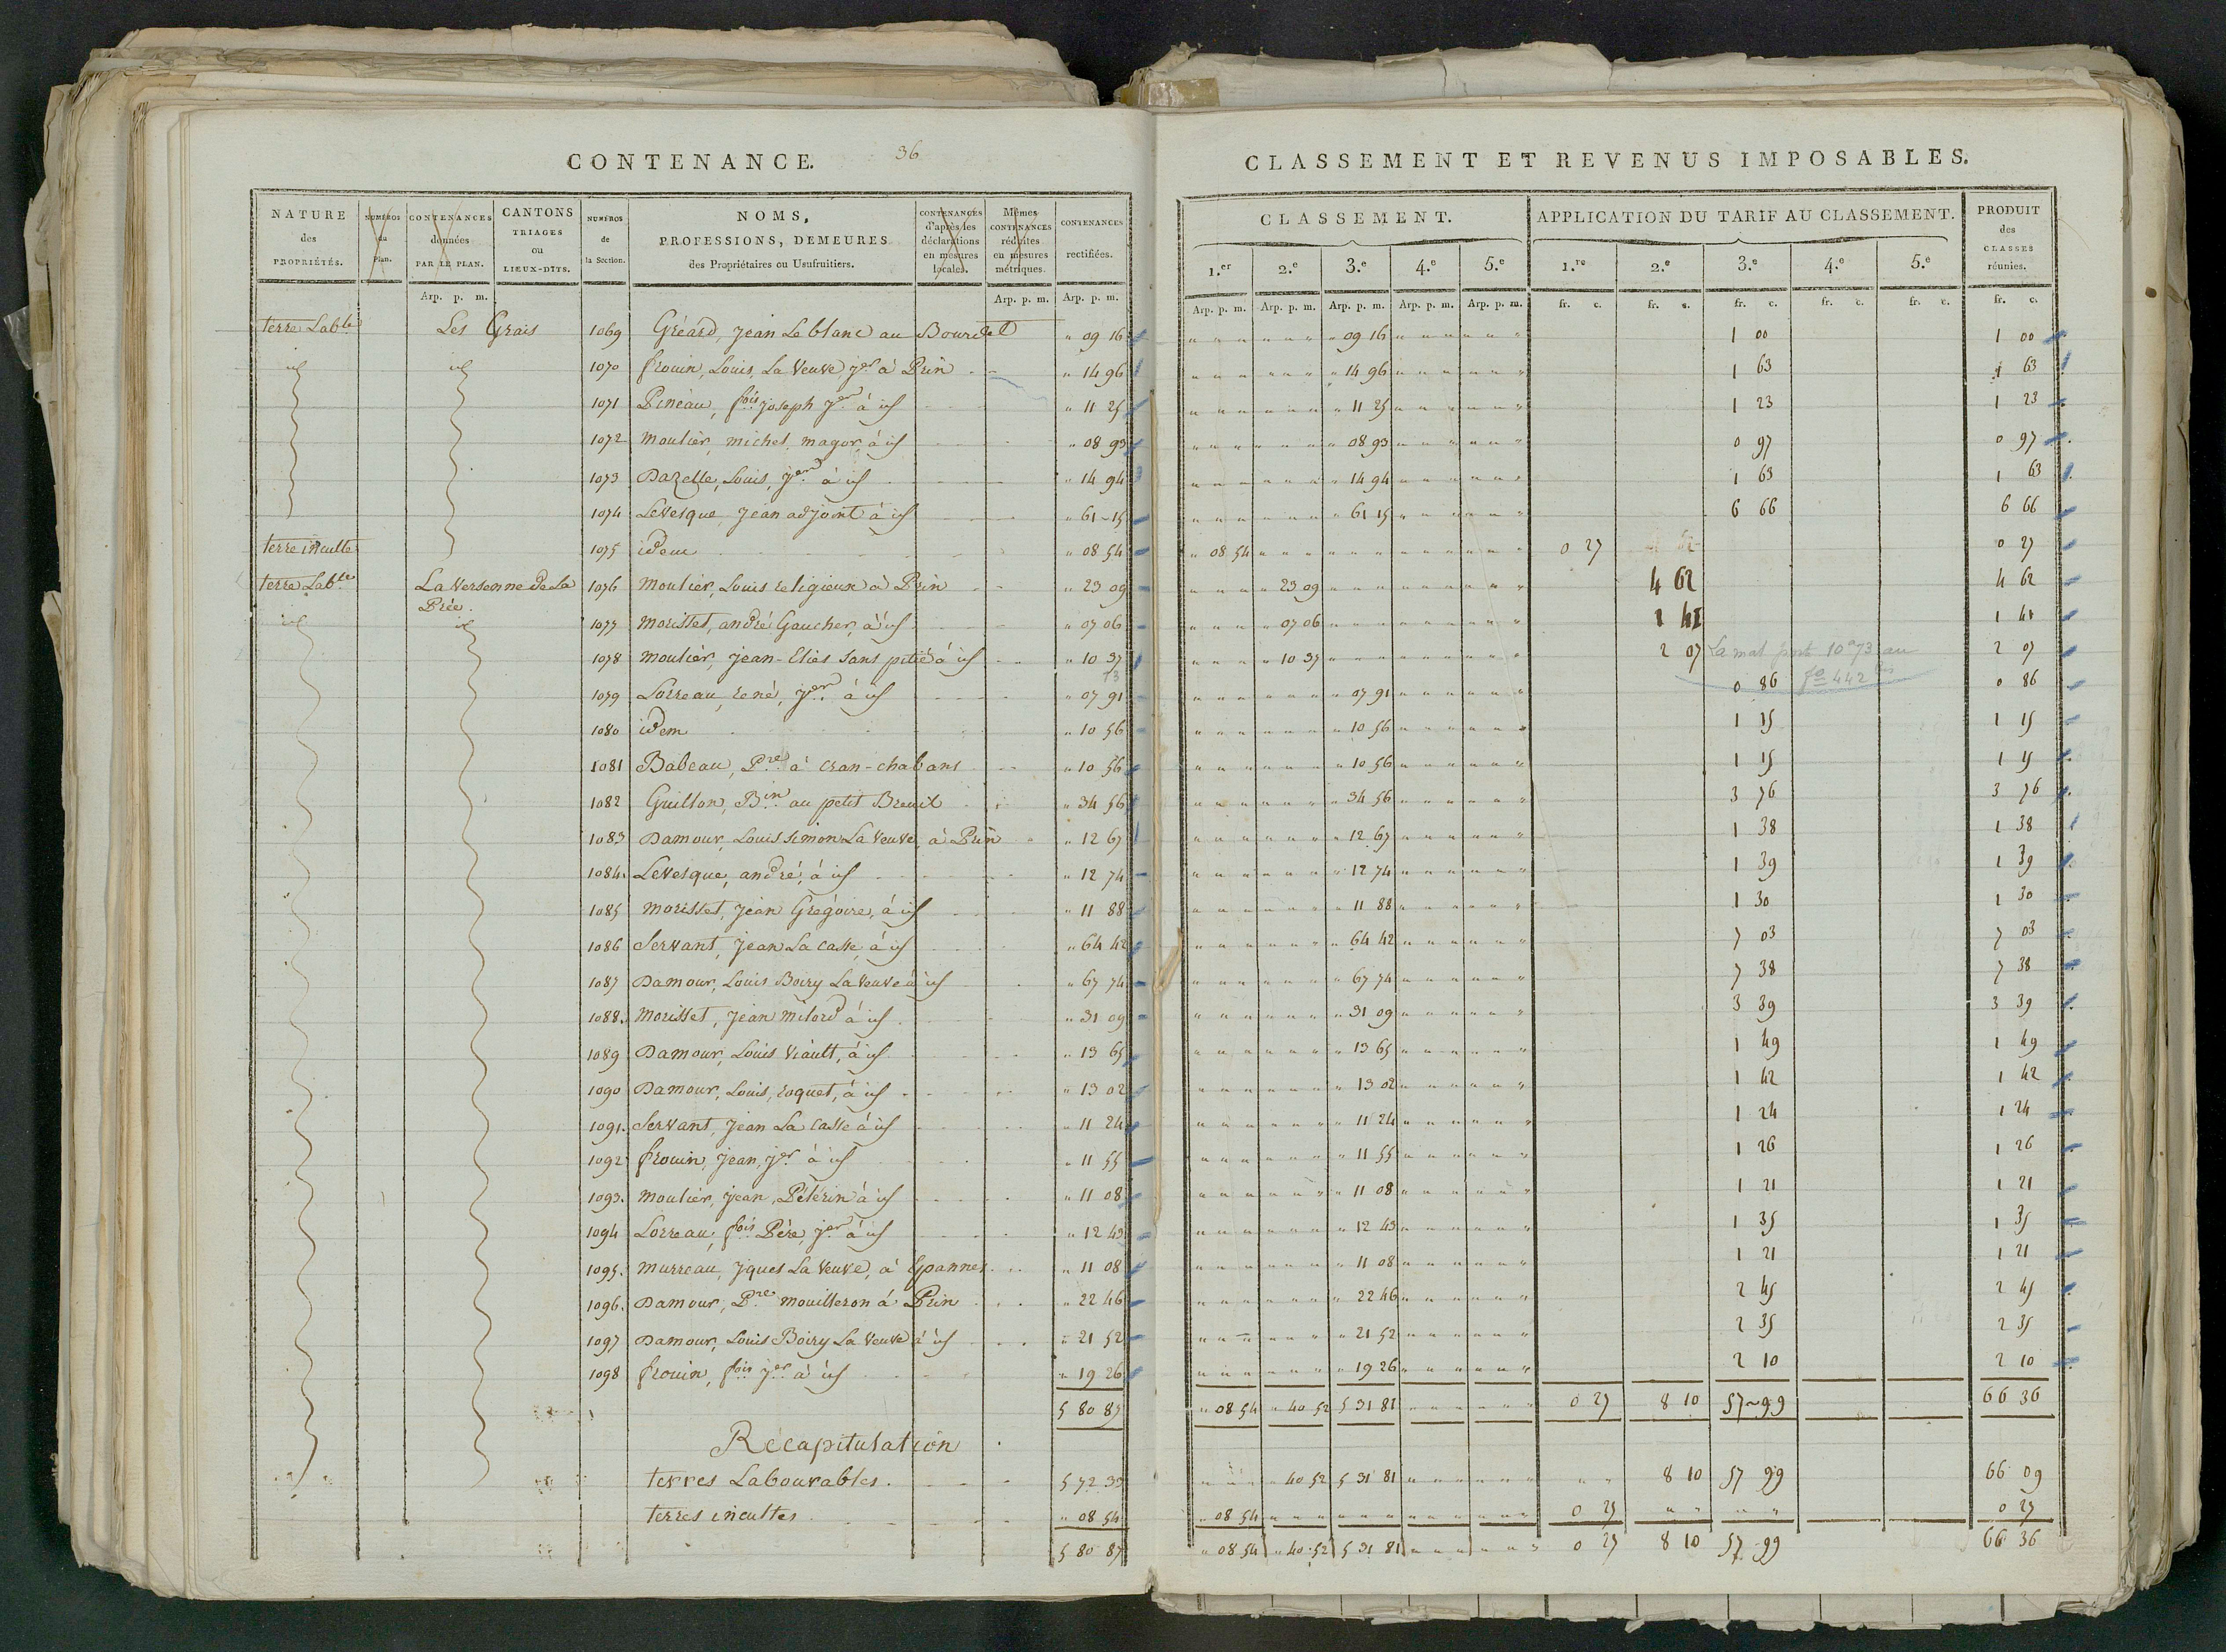 CONTENANCE. 36
NATURE des PROPRIÉTÉS. NUMÉROS du Plan. CONTENANCES données PAR LE PLAN. CANTONS TRIAGES ou LIEUX-DITS. NUMÉROS de la Section. NOMS, PROFESSIONS, DEMEURES des Propriétaires ou Usufruitiers. CONTENANCES d'après les déclarations en mesures locales. Mêmes CONTENANCES réduites en mesures métriques. CONTENANCES rectifiées.
Arp. p. m. Arp. p. m. Arp. p. m.
terre Lable Les Grais 1069 Gréard, Jean Le blanc au Bourdet " 09 16
id id 1070 frouin, Louis, La Veuve jer à Prin " 14 96
1071 Pineau, fois joseph jer à id " 11 25
1072 Moulier, michel, magor, à id " 08 93
1073 Dazelle, Louis, jer à id " 14 94
1074 Levesque, Jean adjoint à id " 61 15
terre inculte 1075 idem " 08 54
terre Lable La Versenne de La Prée. 1076 Moulier, Louis religieux à Prin " 23 09
id id 1077 Morisset, andré Gaucher, à id " 07 06
1078 Moulier, Jean-Elies Sans pitié à id " 10 37
73
1079 Lorreau, rené, jer à id " 07 91
1080 idem " 10 56
1081 Babeau, Pre à Cran-chabans " 10 56
1082 Guillon, Bin au petit Breuil " 34 56
1083 Damour, Louis Simon La Veuve, à Prin " 12 67
1084. Levesque, andré, à id " 12 74
1085 Morisset, Jean Grégoire, à id " 11 88
1086 Servant, Jean La Casse, à id " 64 42
1087 Damour, Louis Boiry La Veuve à id " 67 74
1088. Morisset, Jean milord à id " 31 09
1089 Damour, Louis Viault, à id " 13 65
1090 Damour, Louis, roquet, à id " 13 02
1091. Servant, Jean La Casse à id " 11 24
1092 frouin, Jean, jer à id " 11 55
1093. Moulier, Jean, Pélérin à id " 11 08
1094 Lorreau, fois Père, jer à id " 12 43
1095. Murreau, Jques La Veuve, à Epannes " 11 08
1096. Damour, Pre Mouilleron à Prin " 22 46
1097 Damour, Louis Boiry La Veuve à id " 21 52
1098 frouin, fois jer à id " 19 26
5 80 87
Récapitulation
terres Labourables. 5 72 33
terres incultes " 08 54
5 80 87
CLASSEMENT ET REVENUS IMPOSABLES.
CLASSEMENT. APPLICATION DU TARIF AU CLASSEMENT. PRODUIT des CLASSES réunies.
1.er 2.e 3.e 4.e 5.e 1.re 2.e 3.e 4.e 5.e
Arp. p. m. Arp. p. m. Arp. p. m. Arp. p. m. Arp. p. m. fr. c. fr. c. fr. c. fr. c. fr. c. fr. c.
" 09 16 1 00 1 00
" 14 96 1 63 1 63
" 11 25 1 23 1 23
" 08 93 0 97 0 97
" 14 94 1 63 1 63
" 61 15 6 66 6 66
" 08 54 0 27 0 27
" 23 09 4 62 4 62
" 07 06 1 41 1 41
" 10 37 2 07 La mat porte 10a73 au 2 07
" 07 91 0 86 fo 442 0 86
" 10 56 1 15 1 15
" 10 56 1 15 1 15
" 34 56 3 76 3 76
" 12 67 1 38 1 38
" 12 74 1 39 1 39
" 11 88 1 30 1 30
" 64 42 7 03 7 03
" 67 74 7 38 7 38
" 31 09 3 39 3 39
" 13 65 1 49 1 49
" 13 02 1 42 1 42
" 11 24 1 24 1 24
" 11 55 1 26 1 26
" 11 08 1 21 1 21
" 12 43 1 35 1 35
" 11 08 1 21 1 21
" 22 46 2 45 2 45
" 21 52 2 35 2 35
" 19 26 2 10 2 10
" 08 54 " 40 52 5 31 81 0 27 8 10 57 99 66 36
" 40 52 5 31 81 8 10 57 99 66 09
" 08 54 0 27 0 27
" 08 54 " 40 52 5 31 81 0 27 8 10 57 99 66 36